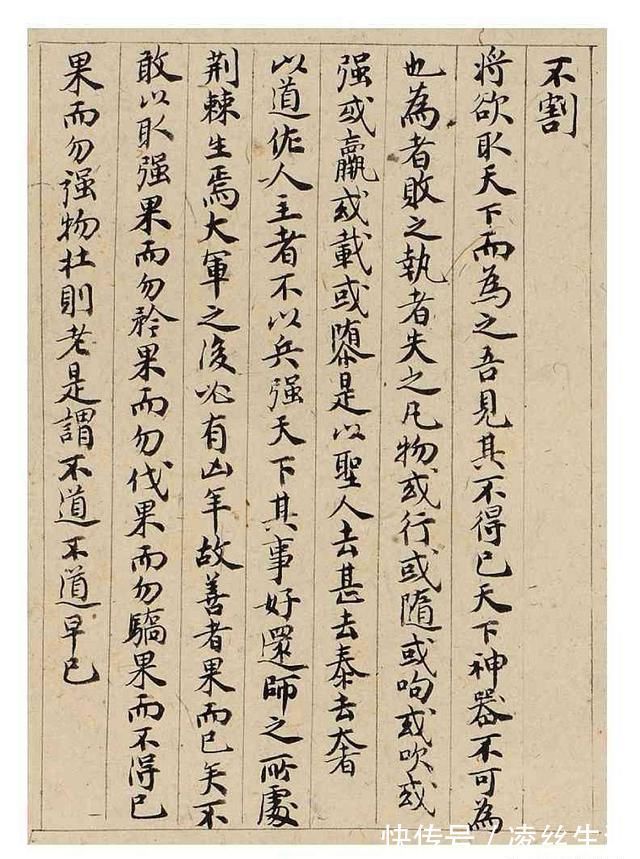 不割
将欲取天下而為之吾見其不得已天下神器不可為
也為者敗之執者失之凡物或行或隨或呴或吹或
强或羸或載或隳是以聖人去甚去泰去奢
以道作人主者不以兵强天下其事好還師之所處
荆棘生焉大軍之後必有凶年故善者果而已矣不
敢以取强果而勿矜果而勿伐果而勿驕果而不得已
果而勿强物壯則老是謂不道不道早已
快传号 / 凌丝生